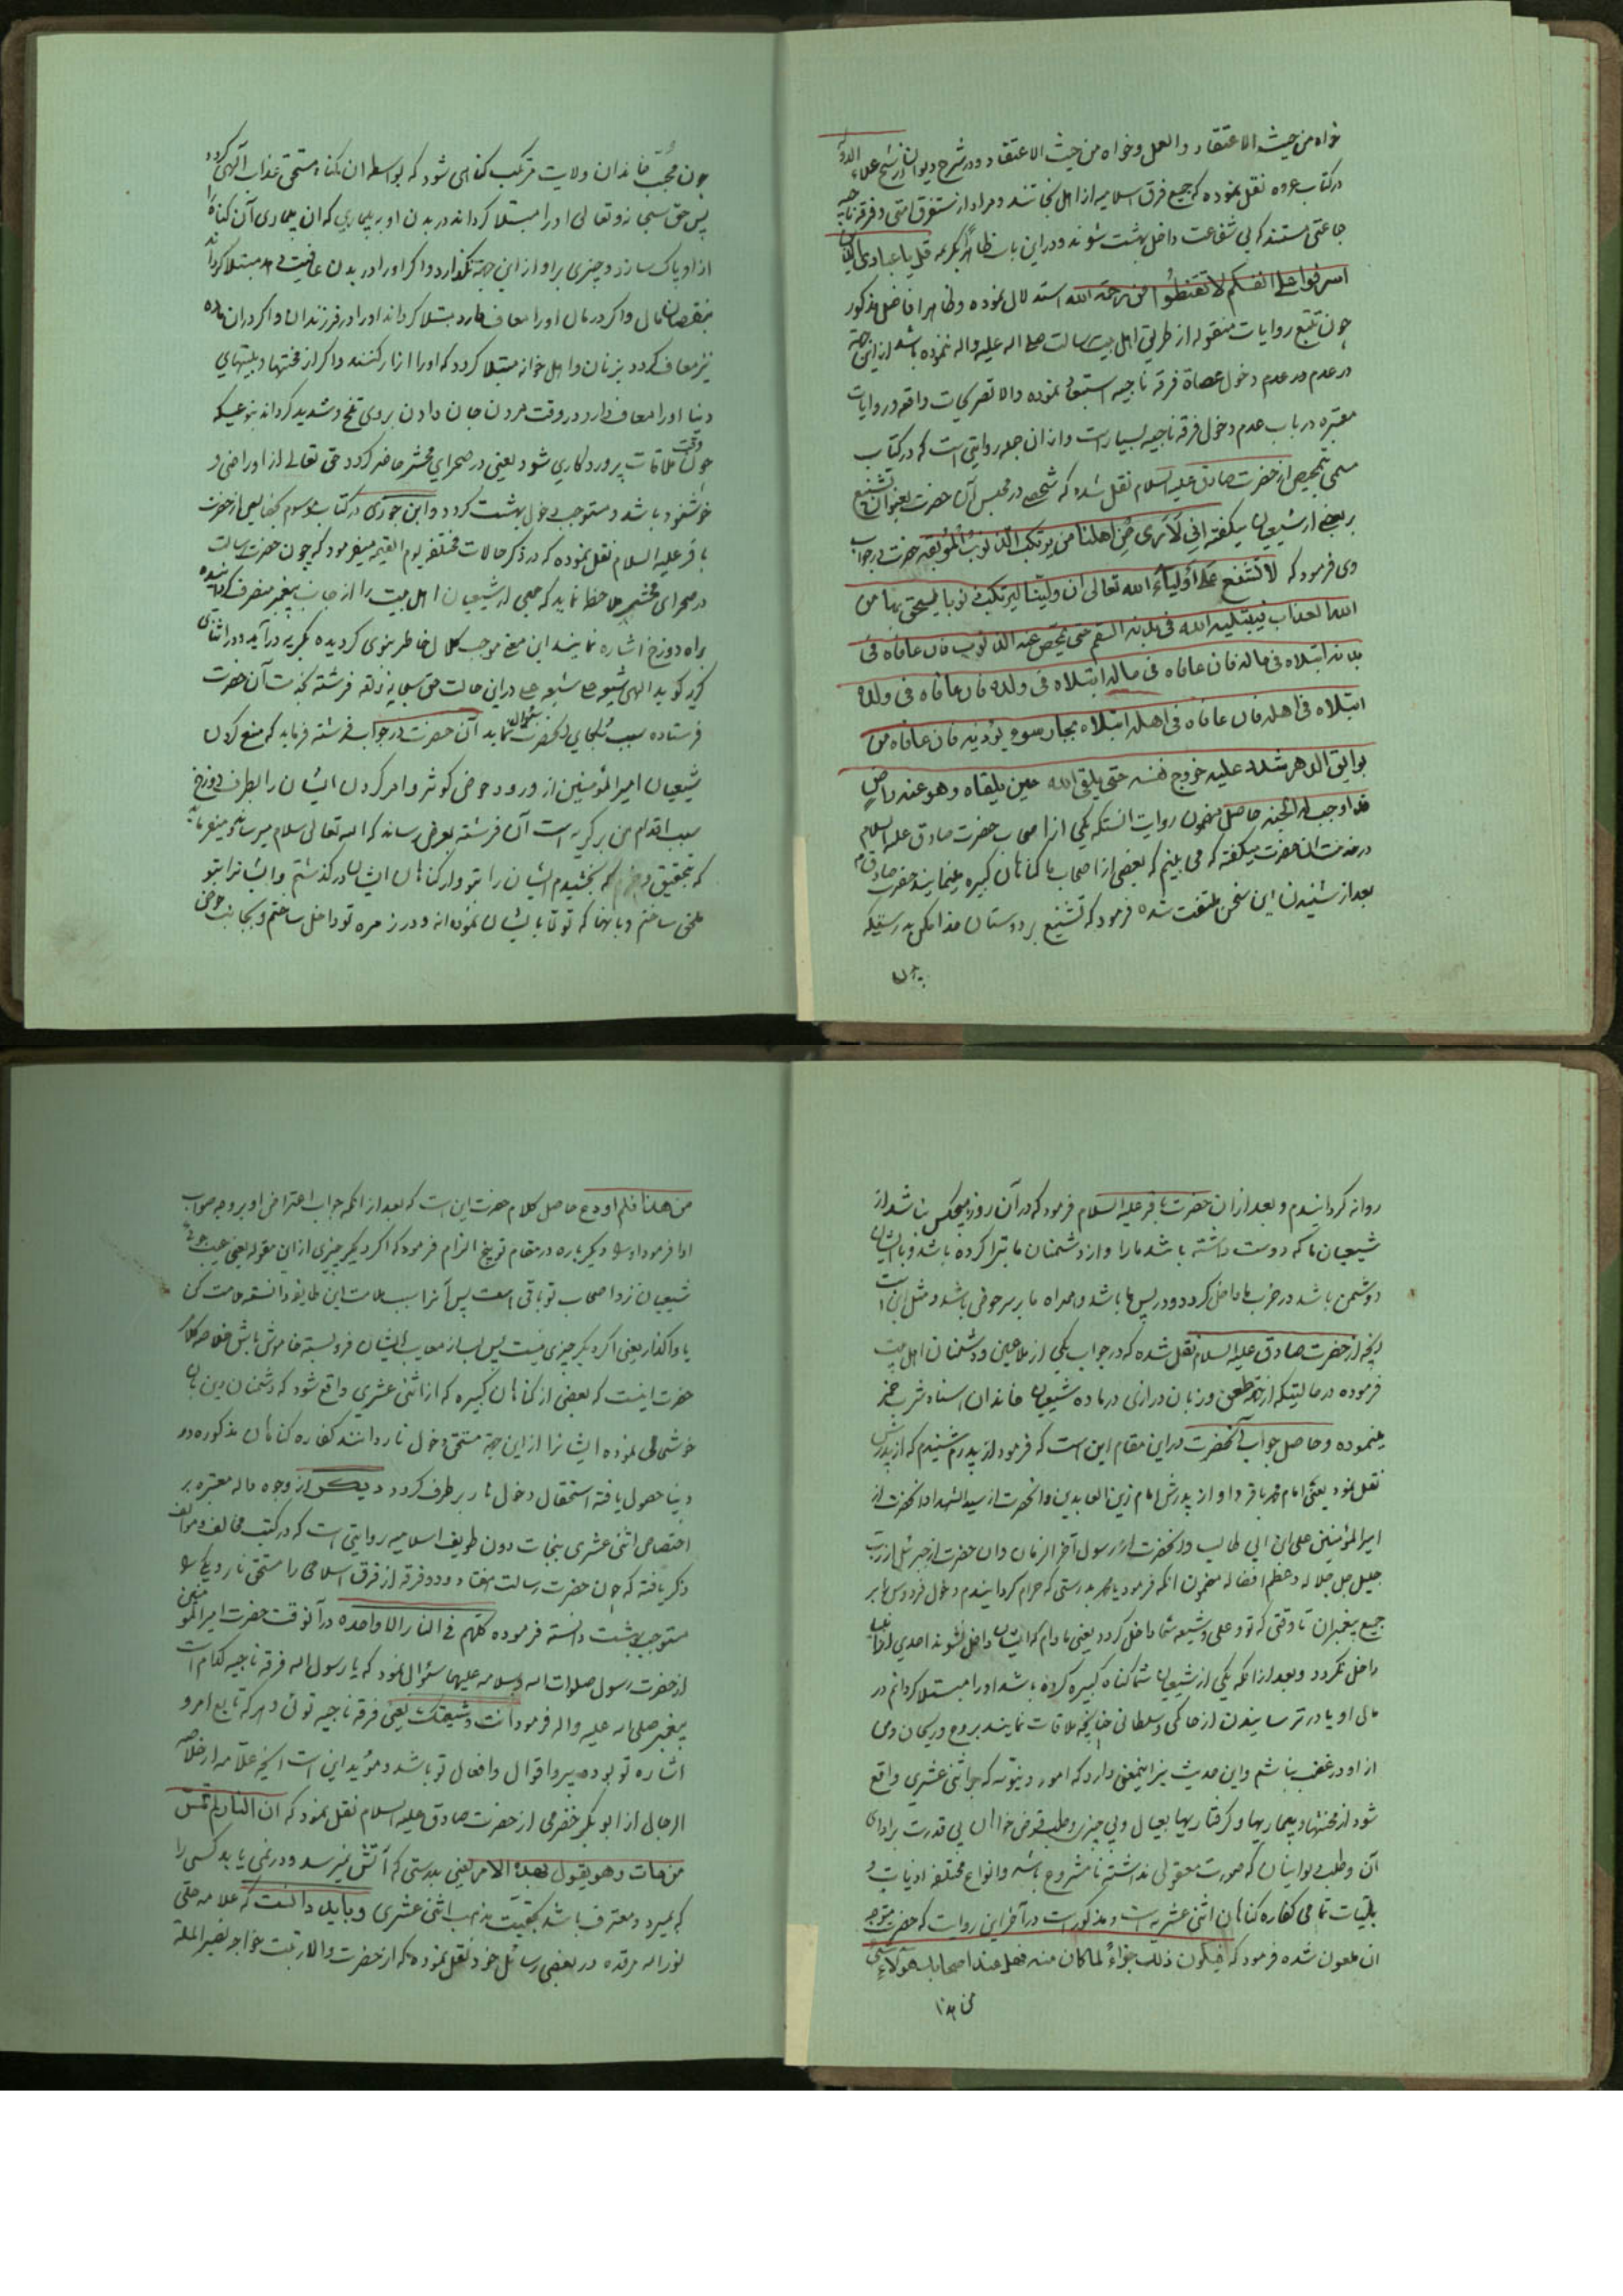 خواه من حیث الاعتقاد والعمل وخواه من حیث الاعتقاد ودر شرح دیوان از شیخ علاء الدوله
در کتاب عروه نقل نموده که جمیع فرق اسلامیه از اهل نجاتند ومراد از ستفرق امتی وفرقه ناجیه
جماعتی هستند که بی شفاعت داخل بهشت شوند ودر این باب ظاهرا بکریمه قل یا عبادی الذین
اسرفوا علی انفسکم لا تقنطوا من رحمة الله استدلال نموده وظاهرا فاضل مذکور
چون تتبع روایات منقوله از طریق اهل بیت رسالت صلی اله علیه واله ننموده باشد از این جهة
در عدم دخول عصاة فرقه ناجیه استبعاد نموده والا تصریحات واقعه در روایات
معتبره در باب عدم دخول فرقه ناجیه بسیار است واز ان جمله روایتی است که در کتاب
مسمی بتمحیص از حضرت صادق علیه السلام نقل شده که شخصی در مجلس آن حضرت بعنوان تشنیع
بر بعضی از شیعیان میگفته انی لاری من اهلنا من یرتکب الذنوب الموبقه حضرت در جواب
وی فرمود که لا تشنع علی اولیاء الله تعالی ان ولینا لیرتکب ذنوبا یستحق بها من
الله العذاب فیبتلیه الله فی بدنه السقم حتی تمحص عنه الذنوب فان عافاه فی
بدنه ابتلاه فی ماله فان عافاه فی ماله ابتلاه فی ولده فان عافاه فی ولده
ابتلاه فی اهله فان عافاه فی اهله ابتلاه بجار سوء یؤذیه فان عافاه من
بوایق الدهر شدد علیه خروج نفسه حتی یلقی الله حین یلقاه وهو عنه راض
قد اوجب له الجنه حاصل مضمون روایت انستکه یکی از اصحاب حضرت صادق علیه السلام
در خدمت ان حضرت میگفته که می بینم که بعضی از اصحاب ما گناهان کبیره مینمایند حضرت صادق م
بعد از شنیدن این سخن ملتفت شده فرمود که تشنیع بر دوستان خدا مکن بدرستیکه
چون
چون محب خاندان ولایت مرتکب گناهی شود که بواسطه ان گناه مستحق عذاب آلهی گردد
پس حق سبحانه وتعالی اورا مبتلا گرداند در بدن او به بیماری که ان بیماری آن گناه را
از او پاک سازد وچیزی بر او از این جهة نگذارد واگر اورا در بدن عافیت دهد مبتلا گرداند
بنقصان مالی واگر در مال اورا معاف دارد مبتلا گرداند اورا در فرزندان واگر در ان ماده
نیز معاف گردد بزنان واهل خوانه مبتلا گردد که اورا ازار کنند واگر از محنتها وبلیتهای
دنیا اورا معاف دارد در وقت مردن جان دادن بر وی تلخ وشدید گرداند بنوعیکه
چون وقت ملاقات پروردگاری شود یعنی در صحرای محشر حاضر گردد حق تعالی از او راضی و
خوشنود باشد ومستوجب دخول بهشت گردد وابن جوزی در کتاب موسوم بخصایص از حضرت
باقر علیه السلام نقل نموده که در ذکر حالات مختلفه یوم القیمه میفرمود که چون حضرت رسالت
در صحرای محشر ملاحظه نماید که جمعی از شیعیان اهل بیت را از جانب پیغمبر منصرف گردانیده
براه دوزخ اشاره نمایند این معنی موجب کلال خاطر نبوی گردیده بگریه درآید ودر اثنای
گریه گوید الهی شیعه علی شیعه علی در این حالت حق سبحانه وتعالی فرشته بخدمت آن حضرت
فرستاده سبب بکای آنحضرت سؤال نماید آن حضرت در جواب فرشته فرماید که منع کردن
شیعیان امیر المؤمنین از ورود حوض کوثر وامر کردن ایشان را بطرف دوزخ
سبب اقدام من بر گریه است آن فرشته بعرض رساند که اله تعالی سلام میرساند ومیفرماید
که بتحقیق که بخشیدم ایشان را بتو واز گناهان ایشان در گذشتم وایشانرا بتو
ملحق ساختم وبانها که تو تابایشان نموده اند ودر زمره تو داخل ساختم وبجانب حوض
روانه گردانیدم وبعد از ان حضرت باقر علیه السلام فرمود که در آن روز هیچکس نباشد از
شیعیان ما که دوست داشته باشد مارا واز دشمنان ما تبرا کرده باشد وبا ایشان
دشمن باشد در حزب ما داخل گردد ودر پس ما باشد وهمراه ما بر سر حوض باشد ومثل این است
آنچه از حضرت صادق علیه السلام نقل شده که در جواب یکی از ملاعین ودشمنان اهل بیت
فرموده در حالیتکه از جهة طعن وزبان درازی در ماده شیعیان خاندان اسناد شرب خمر
مینموده وحاصل جواب آنحضرت در این مقام این است که فرمود از پدرم شنیدم که از پدرش
نقل نمود یعنی امام محمد باقر واو از پدرش امام زین العابدین وانحضرت از سید الشهدا وانحضرت از
امیر المؤمنین علی ابن ابی طالب وانحضرت از رسول آخر الزمان وان حضرت از جبرئیل از رب
جلیل جل جلاله وعظم افضاله مضمون انکه فرمود یا محمد بدرستی که حرام گردانیدم دخول فردوس را بر
جمیع پیغمبران تا وقتی که تو وعلی وشیعه شما داخل گردد یعنی مادام که ایشان داخل نشوند احدی از انبیا
داخل نگردد وبعد از انکه یکی از شیعیان شما گناه کبیره کرده باشد اورا مبتلا گردانم در
مال او یا در ترسانیدن از حاکمی وسلطانی چنانچه ملاقات نمایند بروح وریحان ومن
از او در غضب نباشم واین حدیث نیز اینمعنی دارد که امور دنیویه که بر اثنی عشری واقع
شود از محنتها وبیماریها وگرفتاریها بعیال وبی چیزی وطلب قرض خواهان بی قدرت بر ادای
آن وطلب نوابیان که صورت معقولی نداشته نامشروع باشد وانواع مختلفه اذیات و
بلیات تمامی کفاره گناهان اثنی عشریه است ومذکور است در آخر این روایت که حضرت متوجه
ان ملعون شده فرمود که فیکون ذلک جزاء لما کان منه فهل عند اصحابک هؤلاء شئ
من هذا
من هذا فلم او دع حاصل کلام حضرت این است که بعد از انکه جواب اعتراض او بر وجه صواب
ادا فرمود اورا دیگر باره در مقام توبیخ الزام فرمود که اگر دیگر چیزی از این مقوله یعنی عیب جوئی
شیعیان نزد اصحاب تو باقی است پس آنرا سبب ملامت این طایفه دانسته ملامت کن
یا واگذار یعنی اگر دیگر چیزی نیست پس لب از معایب ایشان فرو بسته خاموش باش خلاصه کلام
حضرت اینست که بعضی از گناهان کبیره که از اثنی عشری واقع شود که دشمنان دین بان
خوشحالی نموده ایشانرا از این جهة مستحق دخول نار دانند کفاره گناهان مذکوره در
دنیا حصول یافته استحقاق دخول نار بر طرف گردد دیگر از وجوه داله معتبره بر
اختصاص اثنی عشری بنجات دون طوایف اسلامیه روایتی است که در کتب مخالف ومؤالف
ذکر یافته که چون حضرت رسالت هفتاد ودو فرقه از فرق اسلامی را مستحق نار ویکی را
مستوجب بهشت دانسته فرموده کلهم فی النار الا واحده در آنوقت حضرت امیر المؤمنین
از حضرت رسول صلوات اله وسلامه علیهما سؤال نمود که یا رسول اله فرقه ناجیه کدام است
پیغمبر صلی اله علیه واله فرمود انت وشیعتک یعنی فرقه ناجیه توئی وهر که تابع امر و
اشاره تو بوده پیرو اقوال وافعال تو باشد ومؤید این است آنچه علامه از خلاصه
الرجال از ابو بکر خضرمی از حضرت صادق علیه السلام نقل نمود که ان النار لم تمس
من مات وهو یقول بهذه الامر یعنی بدرستی که آتش نمیرسد ودر نمی یابد کسی را
که بمیرد ومعترف باشد بحقیت مذهب اثنی عشری وباید دانست که علامه حلی
نور اله مرقده در بعضی رسائل خود نقل نموده که از حضرت والا رتبت خواجه نصیر الملة